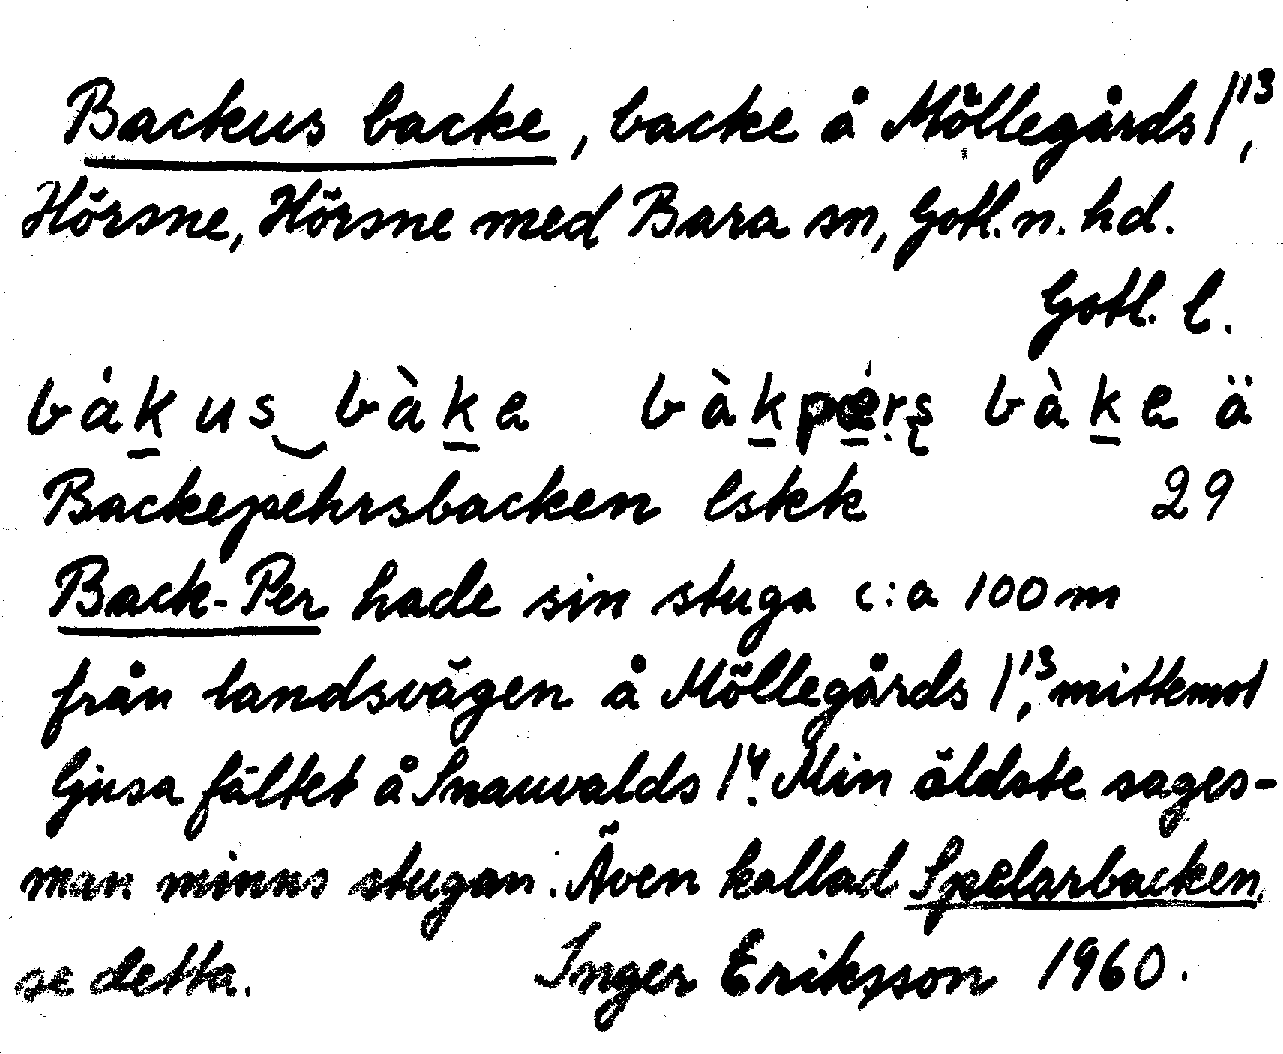 Backus backe, backe å Möllegårds 1¹³,
Hörsne, Hörsne med Bara sn, Gotl. n. hd.
Gotl. l.
bákus‿bàke bàkpers bàke ä
Backepehrsbacken lskk 29
Back-Per hade sin stuga c:a 100 m
från landsvägen å Möllegårds 1¹³, mittemot
ljusa fältet å Snauvalds 1⁴. Min äldste sages-
man minns stugan. Även kallad Spelarbacken,
se detta. Inger Eriksson 1960.